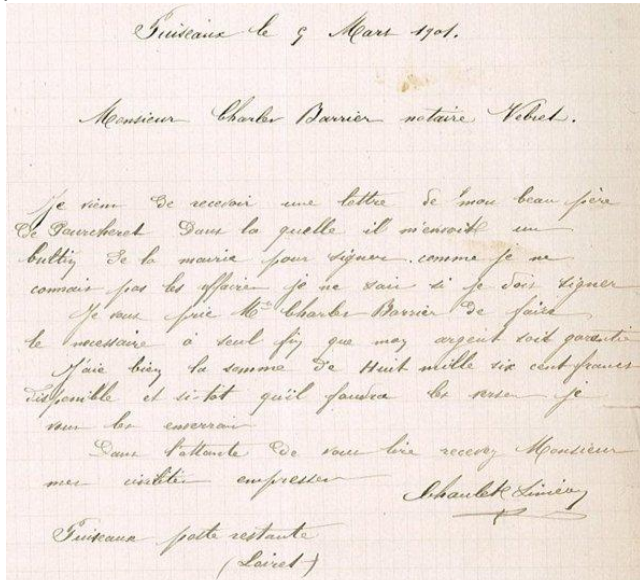 Puiseaux le 9 Mars 1901.
Monsieur Charles Barrier notaire Vebret.
Je viens de recevoir une lettre de mon beau père
de Fourcheret Dans la quelle il m'envoite un
bultin de la mairie pour signer. comme je ne
connais pas les affaire je ne sais si je dois signer
Je vous prie Mr Charles Barrier de faire
le necessaire a seul fin que mon argent soit garantie
J'aie bien la somme de Huit mille six cent francs
disponible et si-tot qu'il faudra les verser je
vous les enverrai
Dans l'attente de vous lire recevez Monsieur
mes civilités empresser
Puiseaux poste restante
(Loiret)